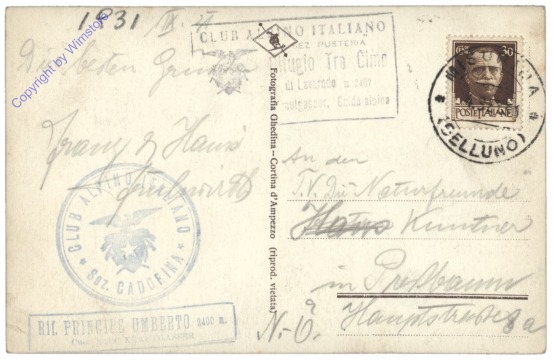 Copyright by Wimstore
1931 IX. 27
Die besten Grüsse
Franz & Hans
CLUB ALPINO ITALIANO
SEZ. CADORINA
Rif. PRINCIPE UMBERTO 2400 m.
CLUB ALPINO ITALIANO
SEZ. PUSTERIA
Rifugio Tre Cime
di Lavaredo
Guida alpina
Fotografia Ghedina - Cortina d'Ampezzo (riprod. vietata)
30
POSTE ITALIANE
MISURINA
(BELLUNO)
An den
T.V. Die Naturfreunde
Hans Kuntner
in Pressbaum
Hauptstrasse 8a
N.-Ö.